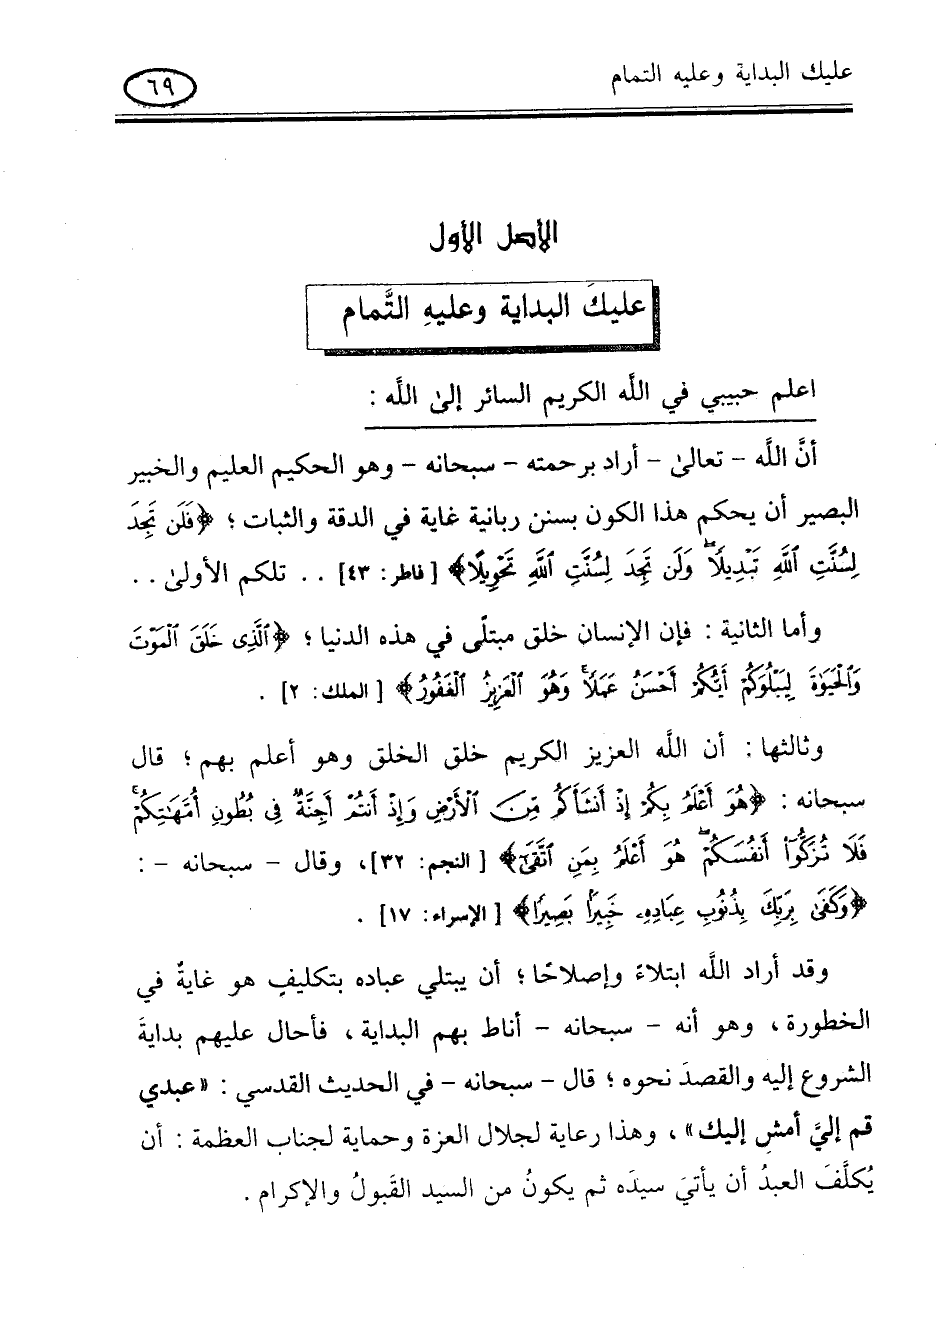 عليك البداية وعليه التمام
٦٩
الأصل الأول
عليكَ البداية وعليهِ التَّمام
اعلم حبيبي في اللَّه الكريم السائر إلىٰ اللَّه :
أنَّ اللَّه - تعالىٰ - أراد برحمته - سبحانه - وهو الحكيم العليم والخبير
البصير أن يحكم هذا الكون بسنن ربانية غاية في الدقة والثبات ؛ ﴿فَلَن تَجِدَ
لِسُنَّتِ ٱللَّهِ تَبْدِيلًاۖ وَلَن تَجِدَ لِسُنَّتِ ٱللَّهِ تَحْوِيلًا﴾ [فاطر: ٤٣] . . تلكم الأولىٰ . .
وأما الثانية : فإن الإنسان خلق مبتلًى في هذه الدنيا ؛ ﴿ٱلَّذِى خَلَقَ ٱلْمَوْتَ
وَٱلْحَيَوٰةَ لِيَبْلُوَكُمْ أَيُّكُمْ أَحْسَنُ عَمَلًاۚ وَهُوَ ٱلْعَزِيزُ ٱلْغَفُورُ﴾ [الملك: ٢] .
وثالثها : أن اللَّه العزيز الكريم خلق الخلق وهو أعلم بهم ؛ قال
سبحانه : ﴿هُوَ أَعْلَمُ بِكُمْ إِذْ أَنشَأَكُم مِّنَ ٱلْأَرْضِ وَإِذْ أَنتُمْ أَجِنَّةٌ فِى بُطُونِ أُمَّهَٰتِكُمْۖ
فَلَا تُزَكُّوٓا۟ أَنفُسَكُمْۖ هُوَ أَعْلَمُ بِمَنِ ٱتَّقَىٰٓ﴾ [النجم: ٣٢]، وقال - سبحانه - :
﴿وَكَفَىٰ بِرَبِّكَ بِذُنُوبِ عِبَادِهِۦ خَبِيرًۢا بَصِيرًا﴾ [الإسراء: ١٧] .
وقد أراد اللَّه ابتلاءً وإصلاحًا ؛ أن يبتلي عباده بتكليفٍ هو غايةٌ في
الخطورة ، وهو أنه - سبحانه - أناط بهم البداية ، فأحال عليهم بدايةَ
الشروع إليه والقصدَ نحوه ؛ قال - سبحانه - في الحديث القدسي : «عبدي
قم إليَّ أمشِ إليك» ، وهذا رعاية لجلال العزة وحماية لجناب العظمة : أن
يُكلَّفَ العبدُ أن يأتيَ سيدَه ثم يكونُ من السيد القَبولُ والإكرام .